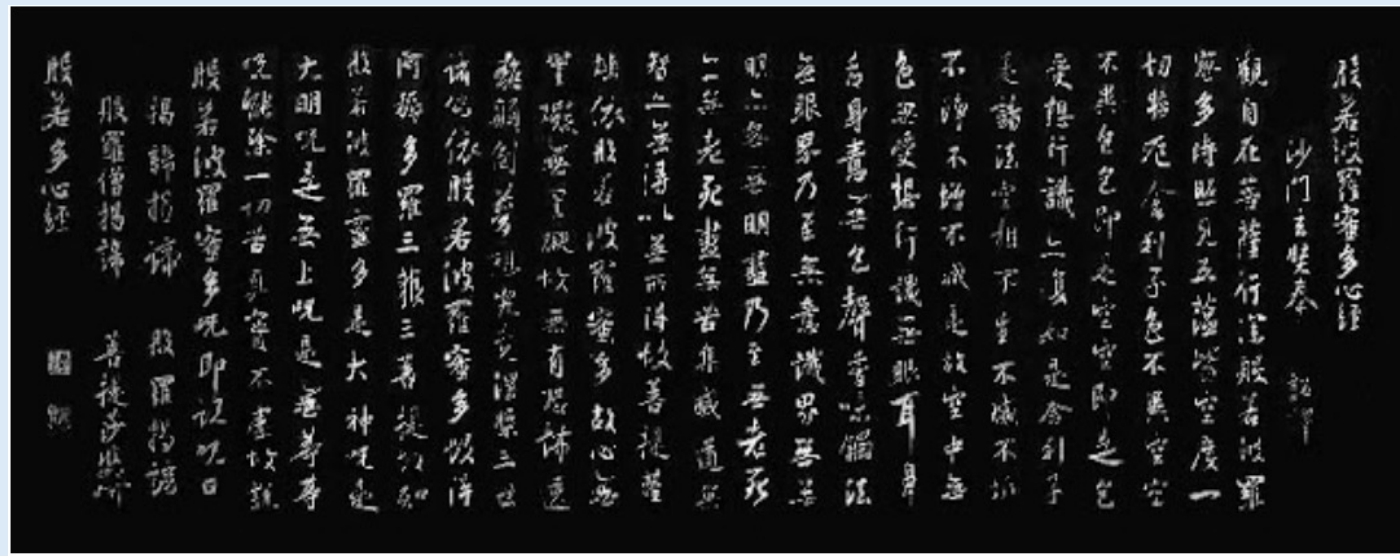 般若波羅蜜多心經
沙門玄奘奉 詔譯
觀自在菩薩行深般若波羅
蜜多時照見五蘊皆空度一
切苦厄舍利子色不異空空
不異色色即是空空即是色
受想行識亦復如是舍利子
是諸法空相不生不滅不垢
不淨不增不減是故空中無
色無受想行識無眼耳鼻
舌身意無色聲香味觸法
無眼界乃至無意識界無無
明亦無無明盡乃至無老死
亦無老死盡無苦集滅道無
智亦無得以無所得故菩提薩
埵依般若波羅蜜多故心無
罣礙無罣礙故無有恐怖遠
離顛倒夢想究竟涅槃三世
諸佛依般若波羅蜜多故得
阿耨多羅三藐三菩提故知
般若波羅蜜多是大神咒是
大明咒是無上咒是無等等
咒能除一切苦真實不虛故說
般若波羅蜜多咒即說咒曰
揭諦揭諦 般羅揭諦
般羅僧揭諦 菩提莎婆訶
般若多心經